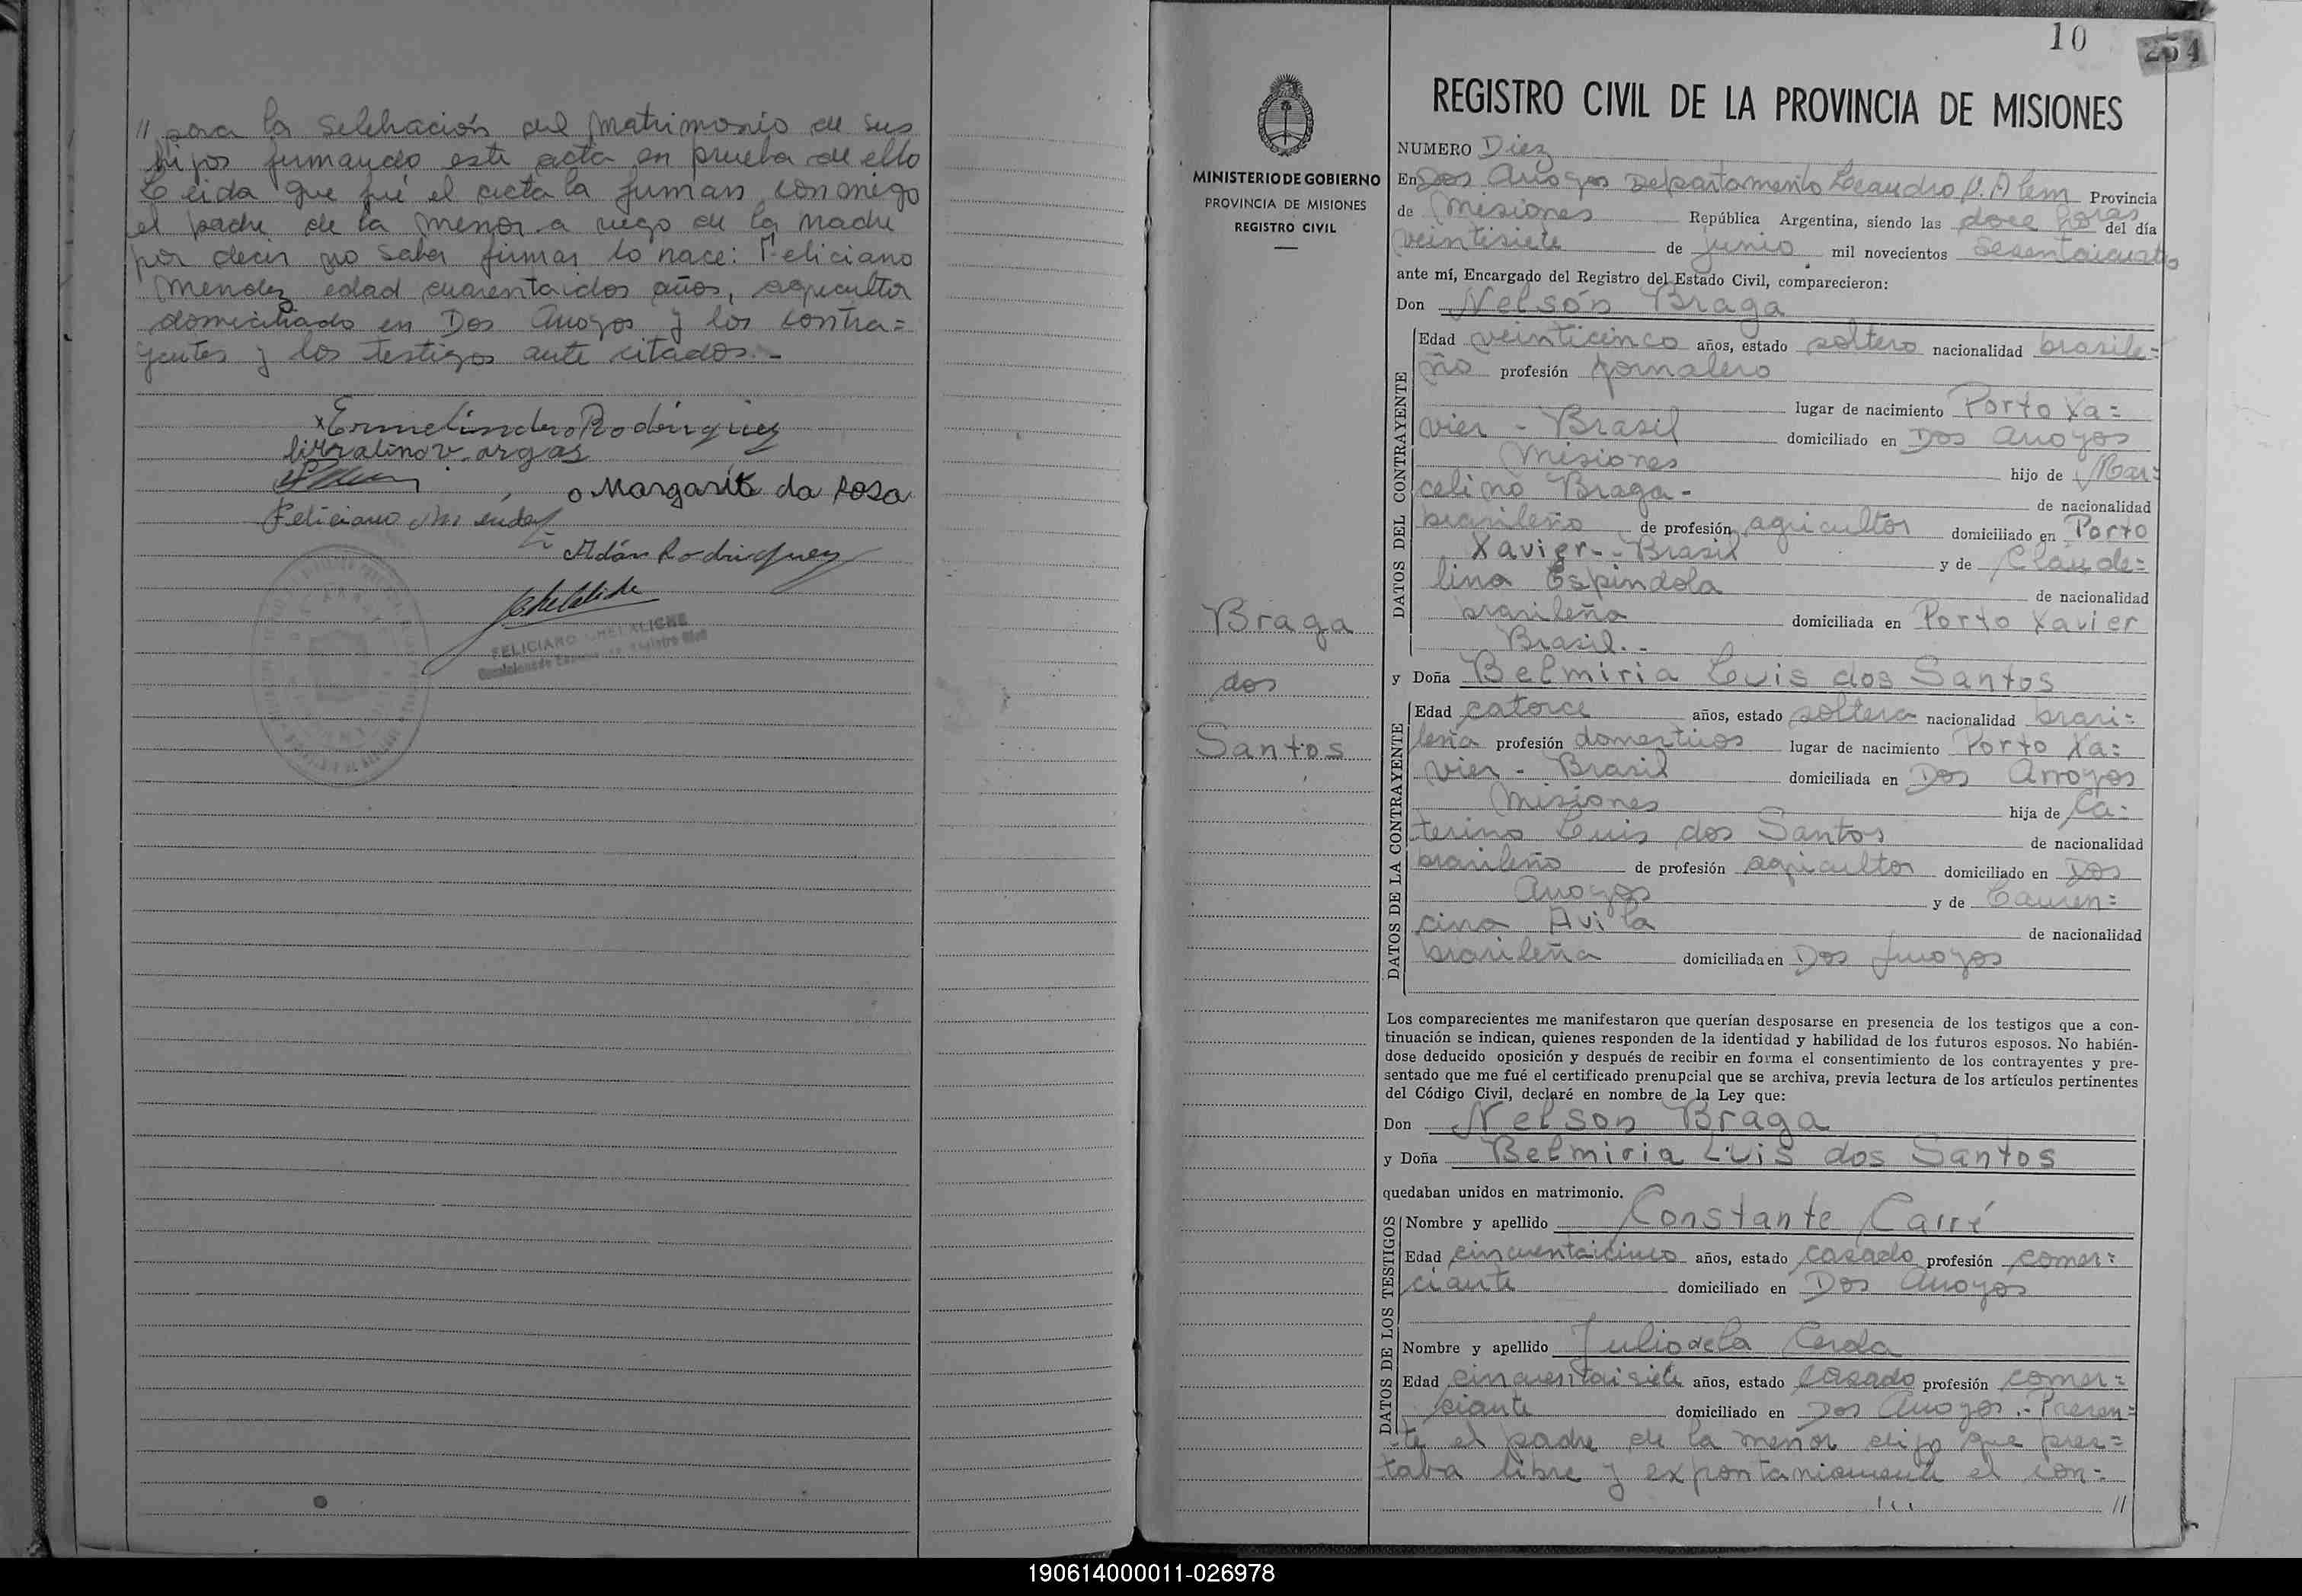 // para la selebración del matrimonio de sus
hijos firmando este acta en prueba de ello
Leida que fué el acta la firman conmigo
el padre de la menor a ruego de la madre
por decir no saber firmar lo hace: Feliciano
Mendez edad cuarentaidos años, agricultor
domiciliado en Dos Arroyos y los contra=
yentes y los testigos ante citados.-
x Ermelindro Rodriguez
libralino vargas
o Margarita da Rosa
Feliciano Mendez
Adán Rodriguez
FELICIANO CHELALICHE
10
254
MINISTERIO DE GOBIERNO
PROVINCIA DE MISIONES
REGISTRO CIVIL
Braga
dos
Santos
REGISTRO CIVIL DE LA PROVINCIA DE MISIONES
NUMERO Diez
En Dos Arroyos Departamento Leandro N. Alem Provincia
de Misiones República Argentina, siendo las doce horas del día
veintisiete de junio mil novecientos sesentaicuatro
ante mí, Encargado del Registro del Estado Civil, comparecieron:
Don Nelsón Braga
DATOS DEL CONTRAYENTE
Edad veinticinco años, estado soltero nacionalidad brasile=
ño profesión jornalero
lugar de nacimiento Porto Xa=
vier - Brasil domiciliado en Dos Arroyos
Misiones hijo de Mar=
celino Braga - de nacionalidad
brasileño de profesión agricultor domiciliado en Porto
Xavier - Brasil y de Claude=
lina Espindola de nacionalidad
brasileña domiciliada en Porto Xavier
Brasil.-
y Doña Belmiria Luis dos Santos
DATOS DE LA CONTRAYENTE
Edad catorce años, estado soltera nacionalidad brasi=
leña profesión domesticos lugar de nacimiento Porto Xa=
vier - Brasil domiciliada en Dos Arroyos
Misiones hija de Ca=
terino Luis dos Santos de nacionalidad
brasileño de profesión agricultor domiciliado en Dos
Arroyos y de Lauren=
cina Avila de nacionalidad
brasileña domiciliada en Dos Arroyos
Los comparecientes me manifestaron que querían desposarse en presencia de los testigos que a con-
tinuación se indican, quienes responden de la identidad y habilidad de los futuros esposos. No habién-
dose deducido oposición y después de recibir en forma el consentimiento de los contrayentes y pre-
sentado que me fué el certificado prenupcial que se archiva, previa lectura de los artículos pertinentes
del Código Civil, declaré en nombre de la Ley que:
Don Nelson Braga
y Doña Belmiria Luis dos Santos
quedaban unidos en matrimonio.
DATOS DE LOS TESTIGOS
Nombre y apellido Constante Carré
Edad cincuentaicinco años, estado casado profesión comer=
ciante domiciliado en Dos Arroyos
Nombre y apellido Julio de la Cerda
Edad cincuentaisiete años, estado casado profesión comer=
ciante domiciliado en Dos Arroyos.- Presen=
te el padre de la menor dijo que pres=
taba libre y expontaniamente el con=
//
190614000011-026978